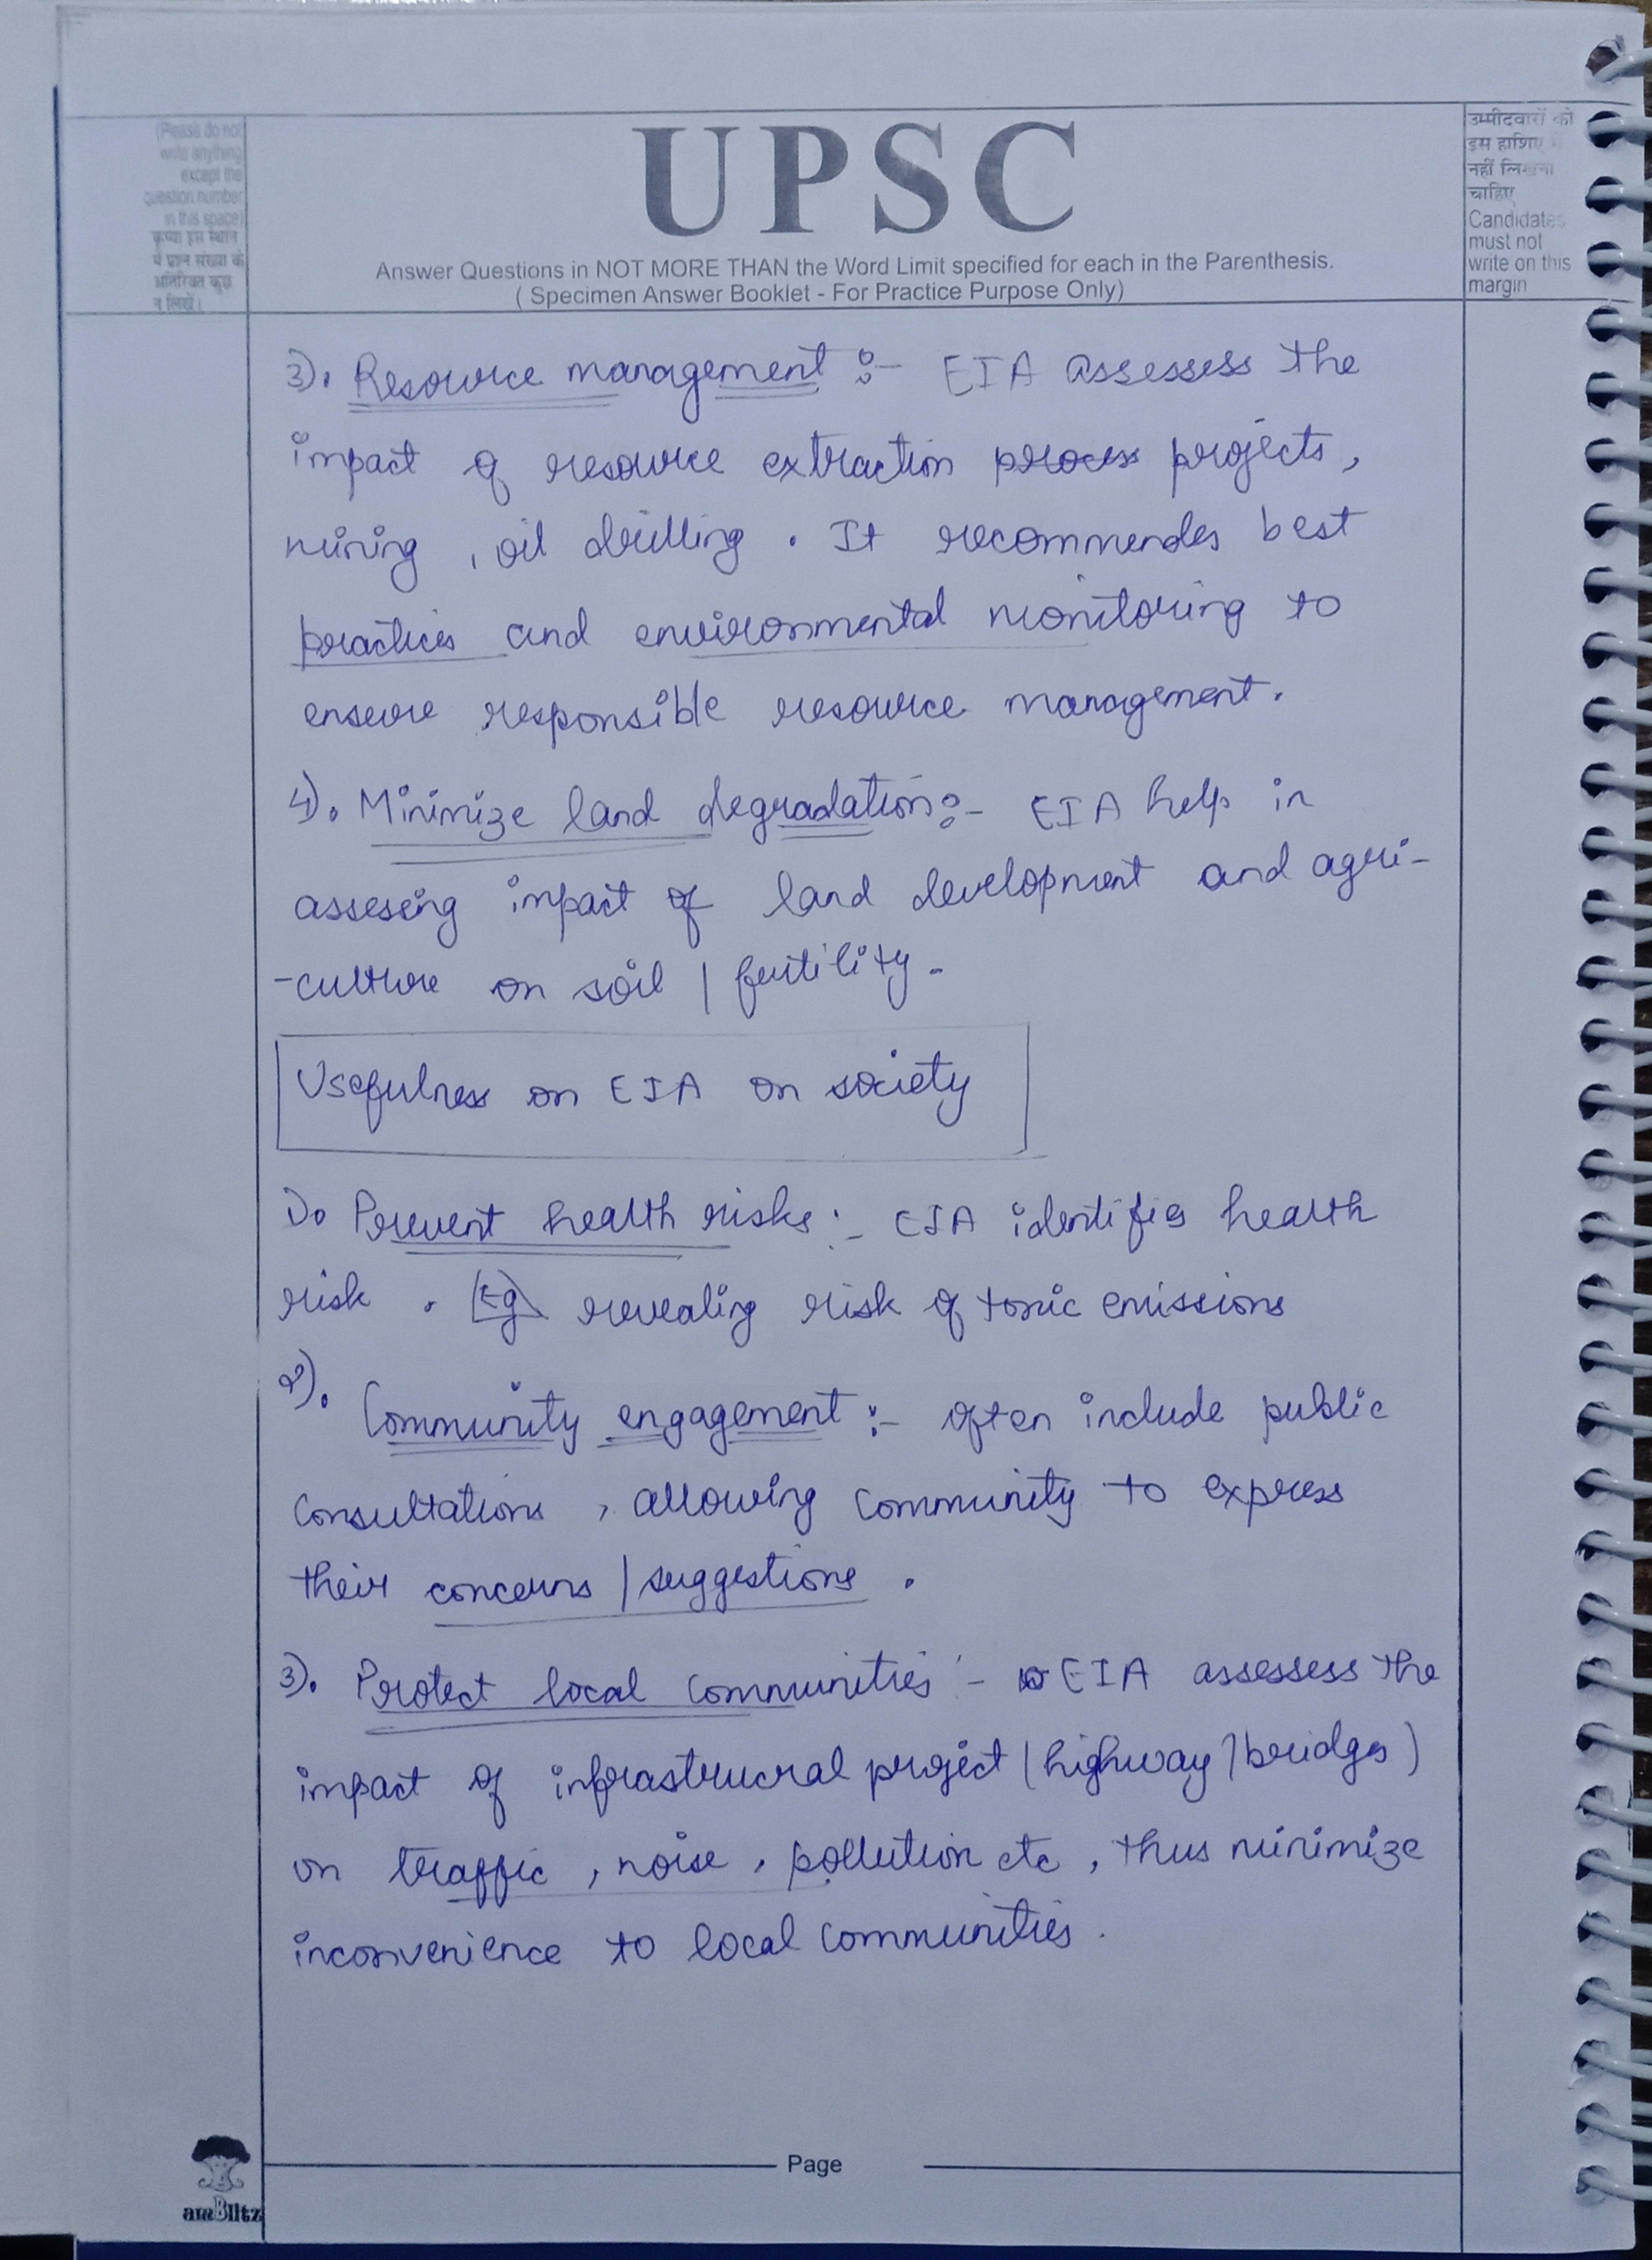 (Please do not
write anything
except the
question number
in this space)
कृपया इस स्थान
में प्रश्न संख्या के
अतिरिक्त कुछ
न लिखें।
UPSC
Answer Questions in NOT MORE THAN the Word Limit specified for each in the Parenthesis.
( Specimen Answer Booklet - For Practice Purpose Only)
उम्मीदवारों को
इस हाशिए में
नहीं लिखना
चाहिए
Candidates
must not
write on this
margin
3). Resource management :- EIA assessess the
impact of resource extraction process projects,
mining , oil drilling . It recommendes best
practices and environmental monitoring to
ensure responsible resource management.
4). Minimize land degradation :- EIA help in
asseseing impact of land development and agri-
-culture on soil / fertility.
Usefulness on EIA on society
1). Prevent health risks :- EIA identifies health
risk . Eg revealing risk of toxic emissions
2). Community engagement :- often include public
consultations , allowing community to express
their concerns / suggestions .
3). Protect local communities :- EIA assessess the
impact of infrastrucral project (highway / bridges)
on traffic , noise , pollution etc , thus minimize
inconvenience to local communities .
Page
amBlitz